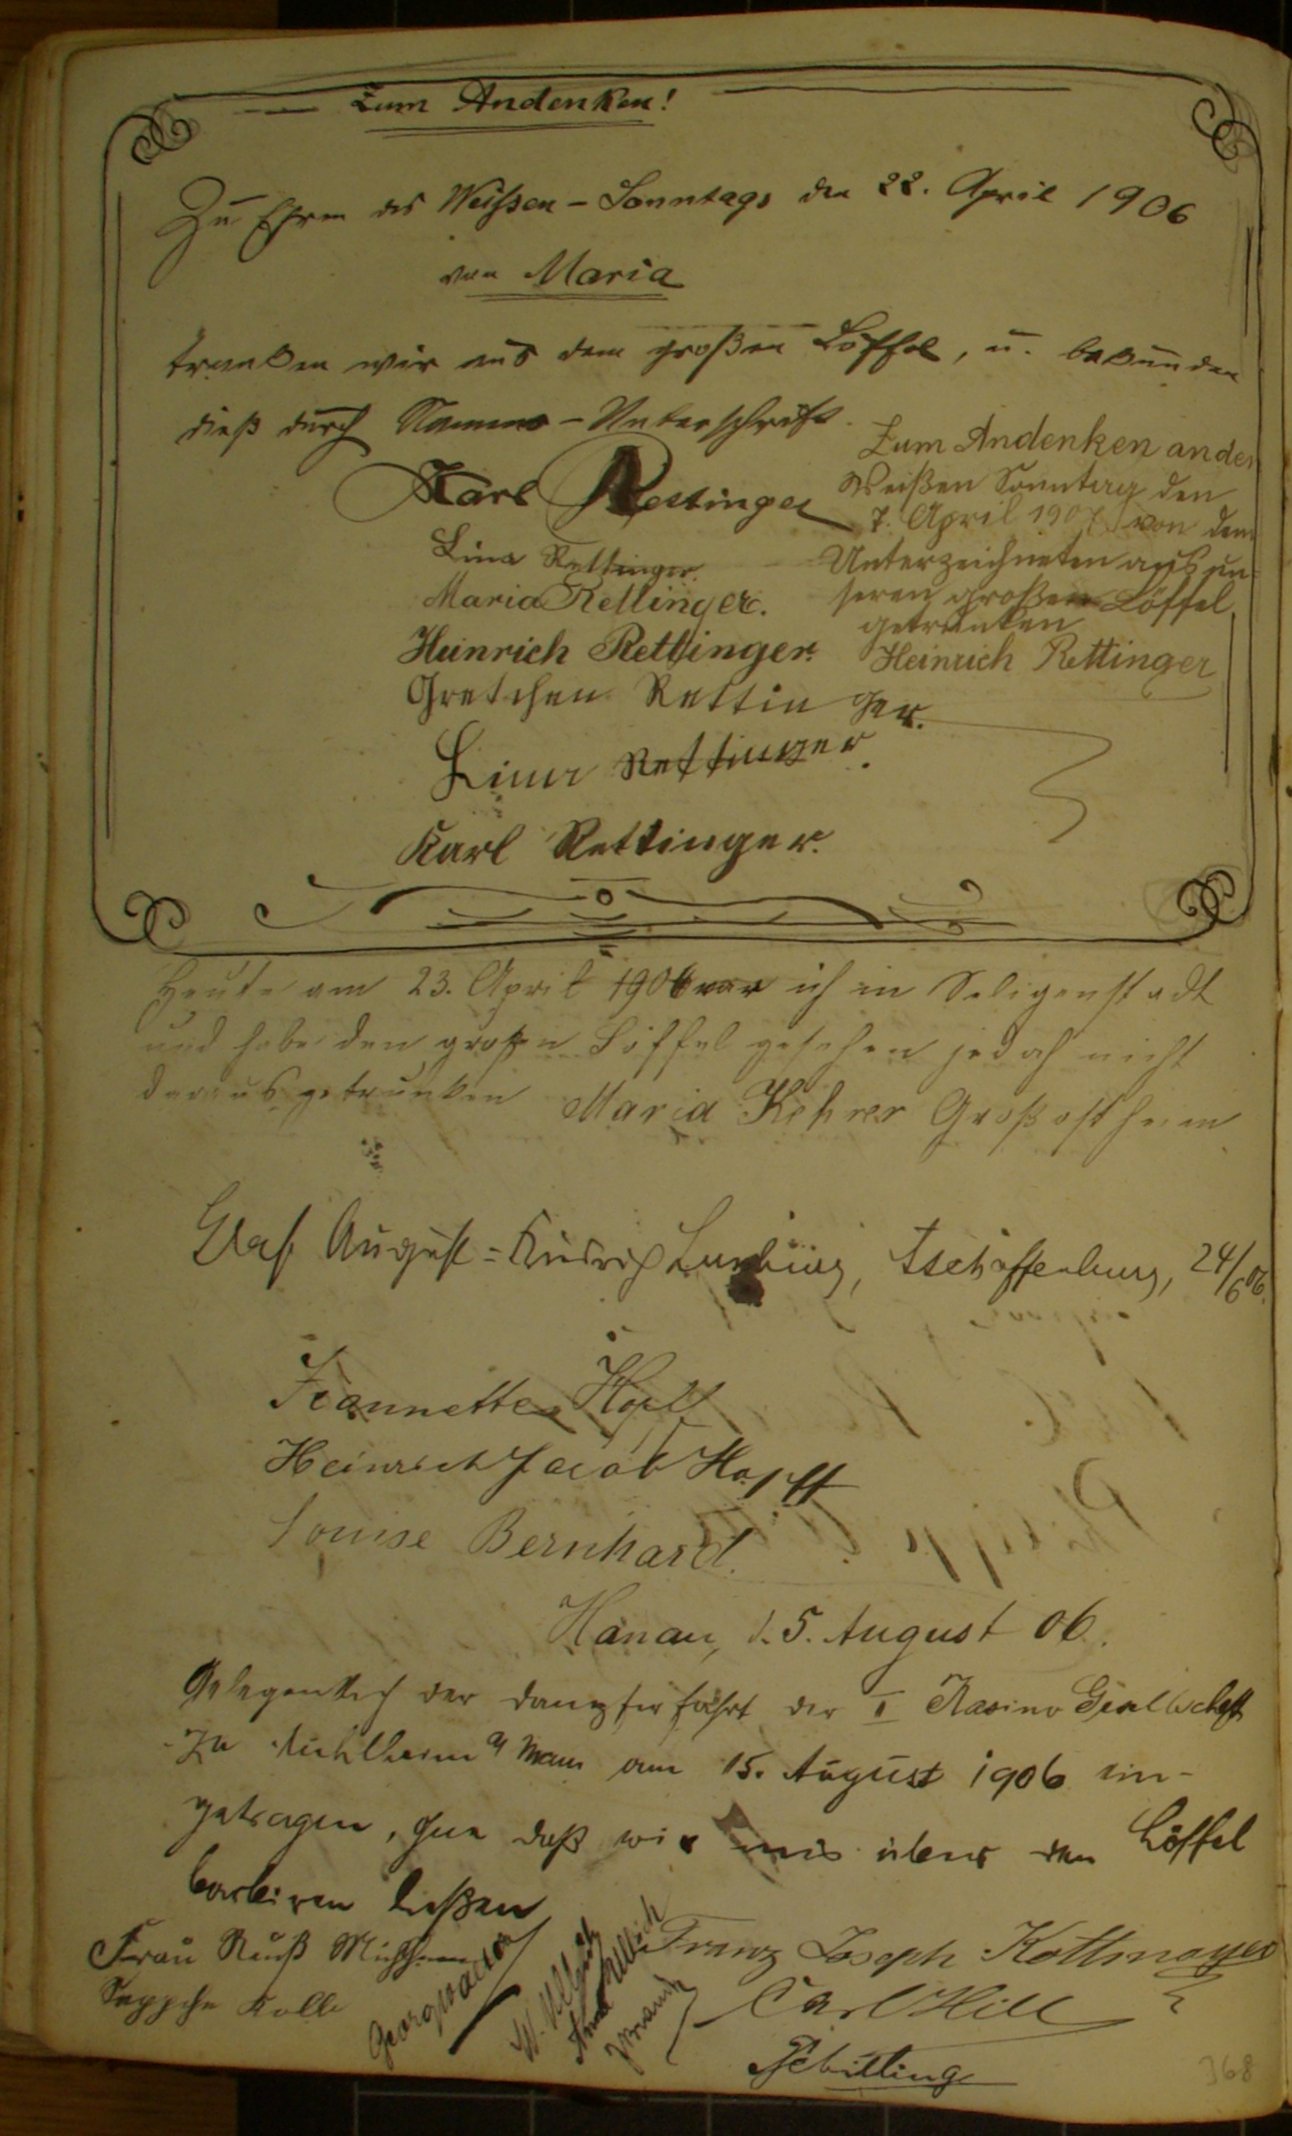 Zum Andenken!
Zu Ehren des Weißen-Sonntags den 22. April 1906
von Maria
tranken wir aus dem großen Löffel, u. bekunden
dieß durch Namens-Unterschrift.
Karl Rettinger
Lina Rettinger.
Maria Rettinger.
Heinrich Rettinger.
Gretchen Rettinger.
Lina Rettinger.
Karl Rettinger.
Zum Andenken an den
Weißen Sonntag den
7. April 1907 von dem
Unterzeichneten aus un-
seren großen Löffel
getrunken
Heinrich Rettinger
Heute am 23. April 1906 war ich in Seligenstadt
und habe den großen Löffel gesehen jedoch nicht
daraus getrunken Maria Kehrer Großostheim
August 24/6 06.
Jeannette
Heinrich Jacob Hopff
Louise Bernhard.
Hanau, d. 5. August 06.
Gelegentlich der Dampferfahrt der I Kasino Gesellschaft
zu Mühlheim a/Main am 15. August 1906 ein-
getragen, daß wir uns über den Löffel
barbiren ließen
Frau
Georg
W.
Braun
Franz Joseph Kottmayer
Carl Hill
Schilling
368